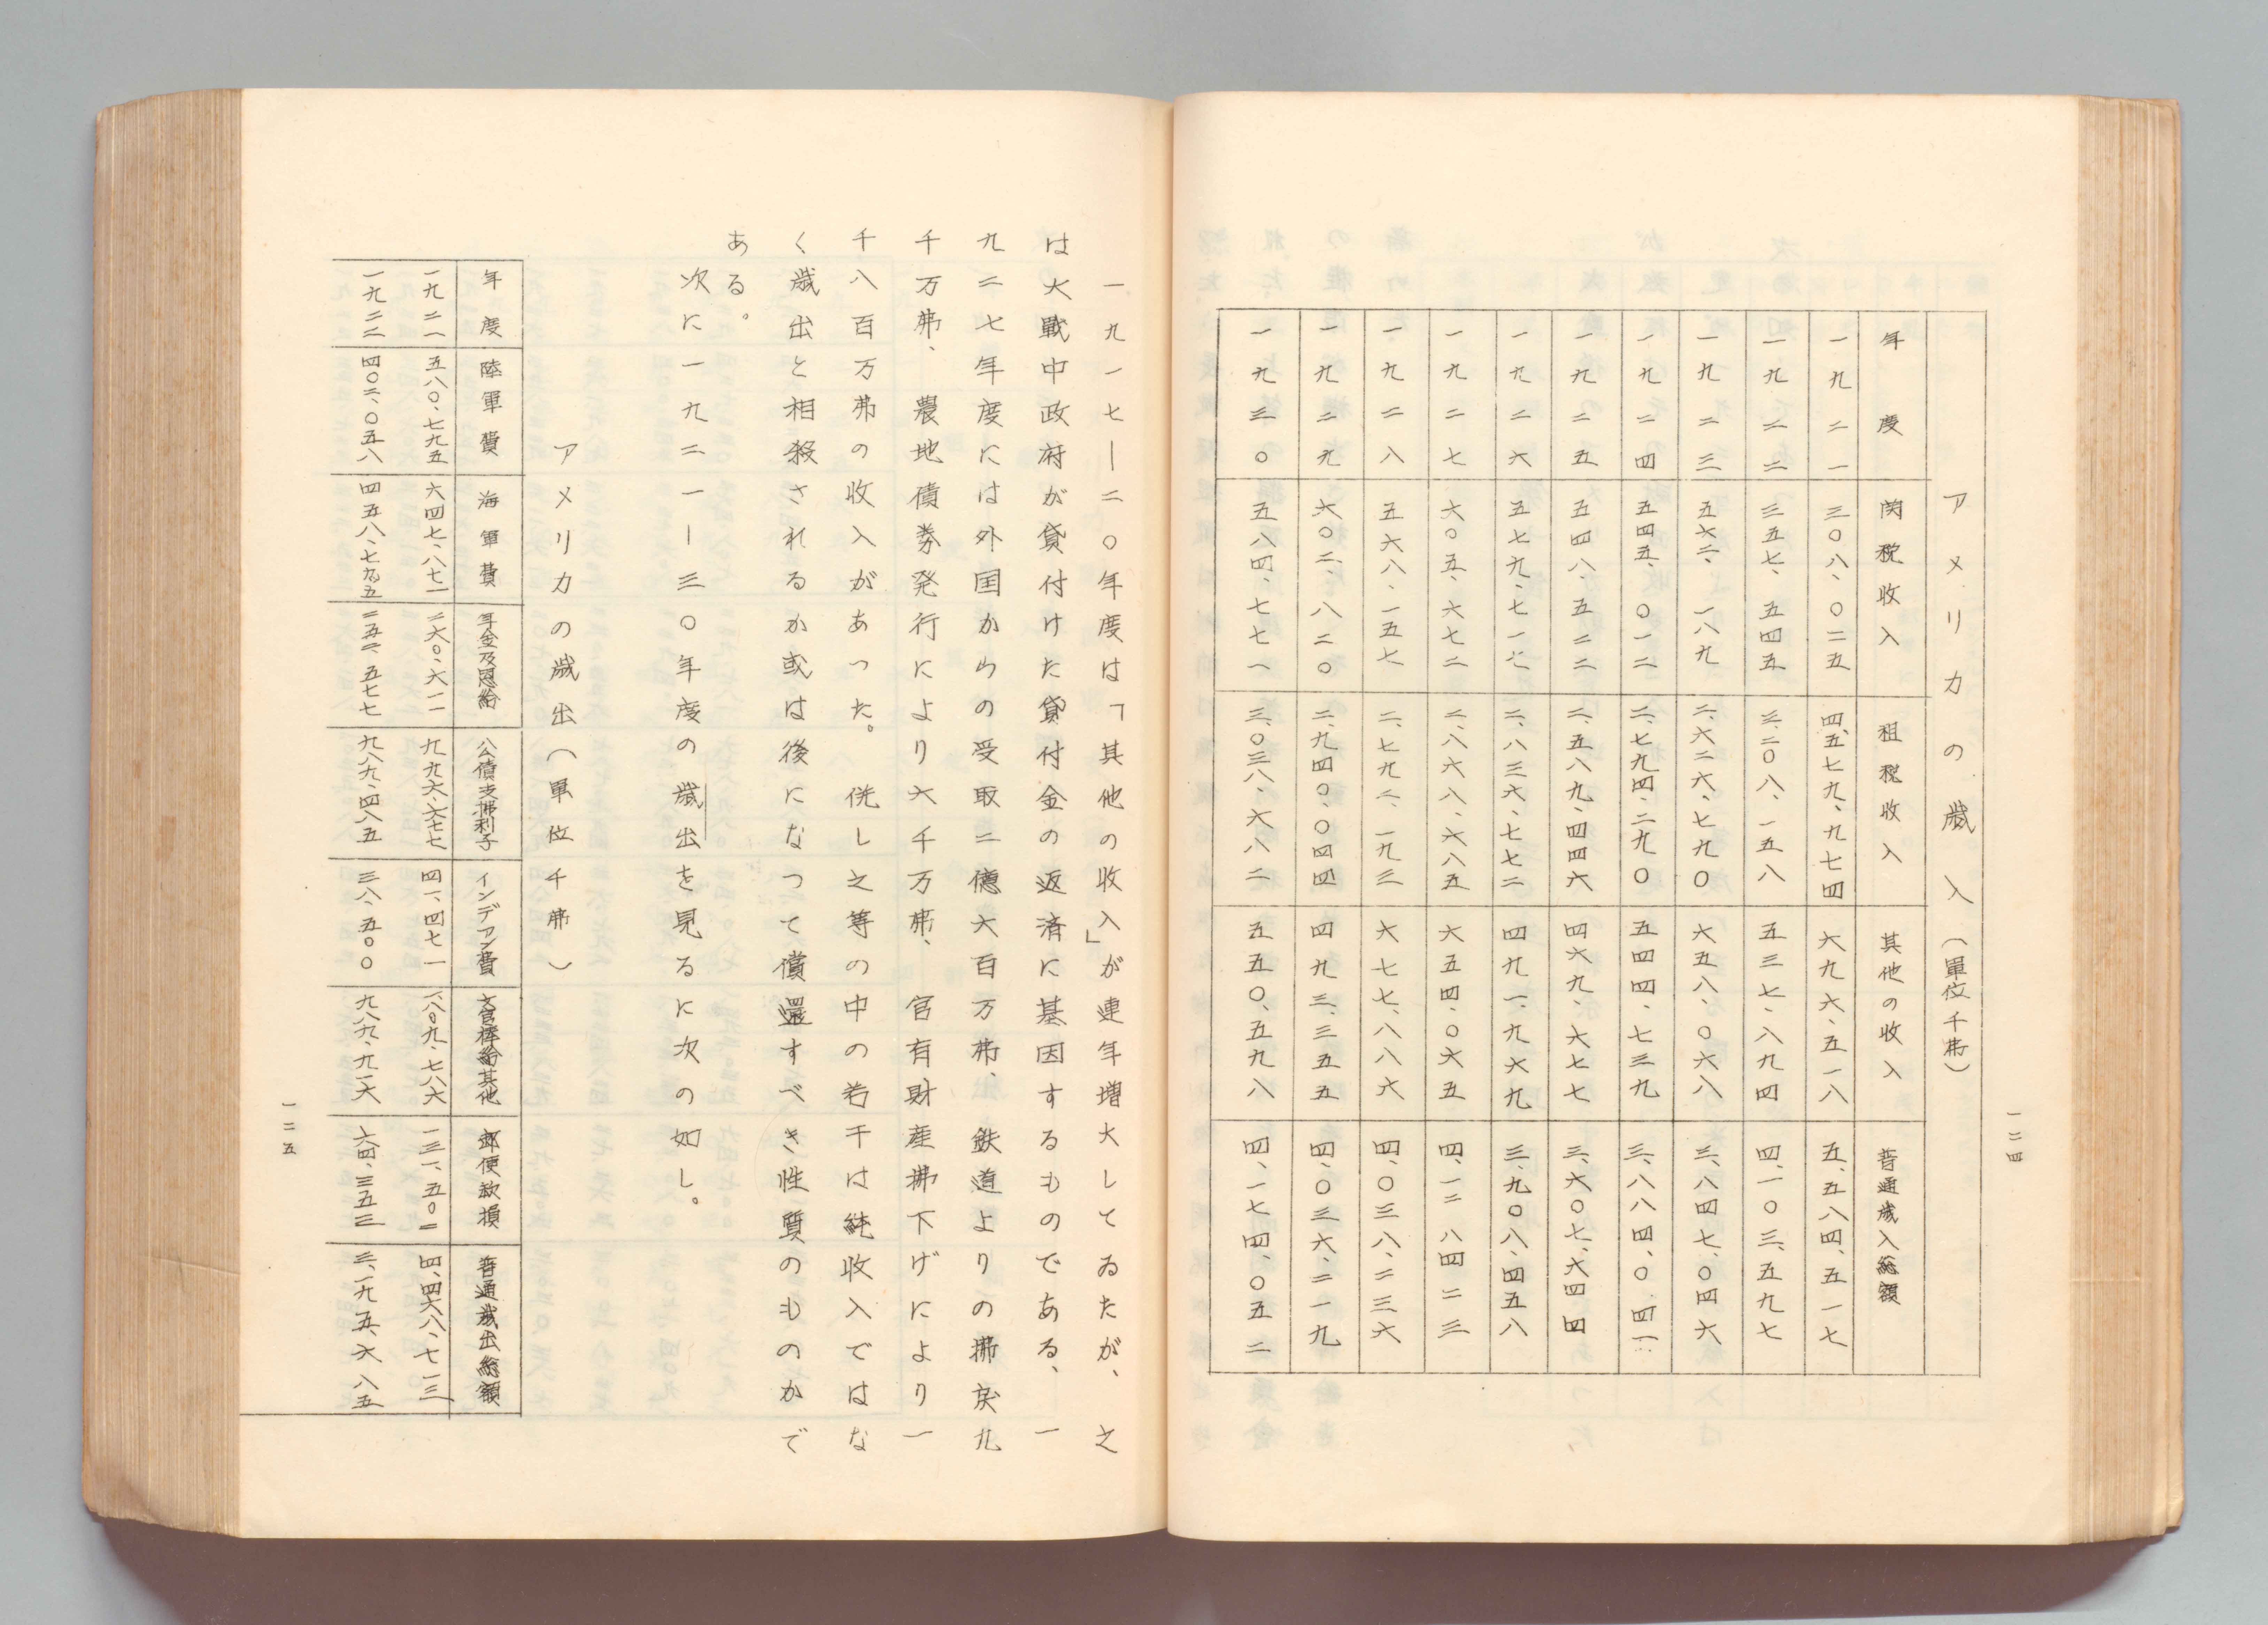 一二四
アメリカの歳入(単位千弗)
年度 関税収入 租税收入 其他の收入 普通歳入総額
一九二一 三〇八、〇二五 四、五七九、九七四 六九六、五一八 五、五八四、五一七
一九二二 三五七、五四五 三、二〇八、一五八 五三七、八九四 四、一〇三、五九七
一九二三 五六二、一八九 二、六二六、七九〇 六五八、〇六八 三、八四七、〇四六
一九二四 五四五、〇一二 二、七九四、二九〇 五四四、七三九 三、八八四、〇四一
一九二五 五四八、五二二 二、五八九、四四六 四六九、六七七 三、六〇七、六四四
一九二六 五七九、七一七 二、八三六、七七二 四九一、九六九 三、九〇八、四五八
一九二七 六〇五、六七二 二、八六八、六八五 六五四、〇六五 四、一二八四二三
一九二八 五六八、一五七 二、七九二、一九三 六七七、八八六 四、〇三八、二三六
一九二九 六〇二、八二〇 二、九四〇、〇四四 四九三、三五五 四、〇三六、二一九
一九三〇 五八四、七七一 三、〇三八、六八二 五五〇、五九八 四、一七四、〇五二
一九一七―二〇年度は「其他の收入」が連年増大してゐたが、之
は大戰中政府が貸付けた貸付金の返済に基因するものである、一
九二七年度には外国からの受取二億六百万弗、鉄道よりの拂戻九
千万弗、農地債劵発行により六千万弗、官有財産拂下げにより一
千八百万弗の收入があつた。併し之等の中の若干は純收入ではな
く歳出と相殺されるか或は後になつて償還すべき性質のものかで
ある。
次に一九二一―三〇年度の歳出を見るに次の如し。
アメリカの歳出(単位千弗)
年度 陸軍費 海軍費 年金及恩給 公債支拂利子 インデアン費 文官俸給其他 郵便欵損 普通歳出総額
一九二一 五八〇、七九五 六四七、八七一 二六〇、六一一 九九六、六七七 四一、四七一 一、八〇九、七八六 一三一、五〇二 四、四六八、七一三
一九二二 四〇二、〇五八 四五八、七九五 二五二、五七七 九八九、四八五 三八、五〇〇 九八九、九一六 六四、三五三 三、一九五、六八五
一二五